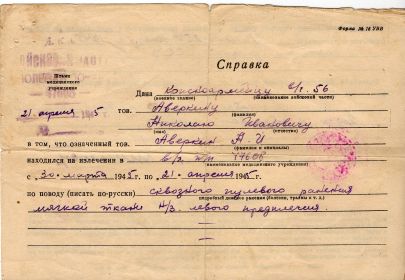 Форма № 16 УВВ
Справка
Штамп
медицинского
учреждения
Дана красноармейцу в/ч. 56
(военное звание) (наименование войсковой части)
21 апреля 1945 тов. Аверкину
(фамилия)
Николаю Ивановичу
(имя) (отчество)
в том, что означенный тов. Аверкин Н И
(фамилия и инициалы)
находился на излечении в
(наименование медицинского учреждения)
с 30 марта 1945 г. по 21 апреля 1945 г.
по поводу (писать по-русски) сквозного пулевого ранения
подробный диагноз ранения (болезни, травмы и т. д.)
мягкой ткани н/з левого предплечия.